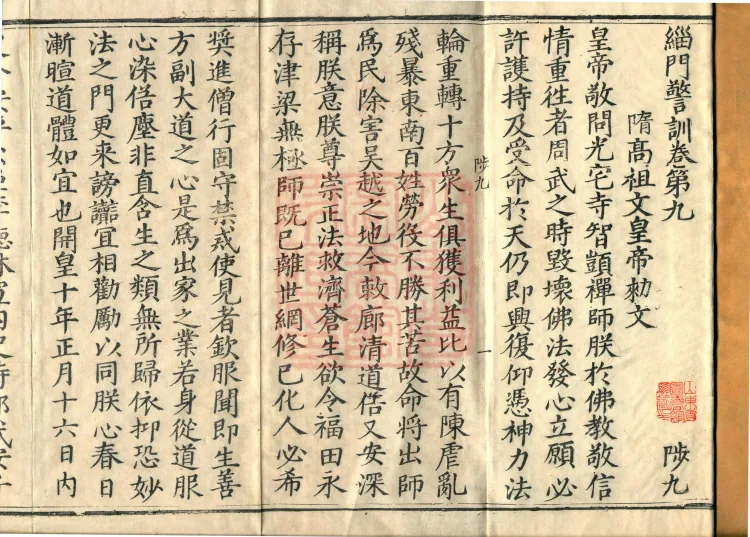 緇門警訓卷第九
陟九
隋髙祖文皇帝勑文
皇帝敬問光宅寺智顗禪師朕於佛教敬信
情重徃者周武之時毀壞佛法發心立願必
許護持及受命於天仍即興復仰憑神力法
陟九
一
輪重轉十方衆生俱獲利益比以有陳虐亂
殘暴東南百姓勞役不勝其苦故命將出師
爲民除害吴越之地今𢿌廓清道俗又安深
稱朕意朕尊崇正法救濟蒼生欲令福田永
存津梁無極師既已離世網修已化人必希
奬進僧行固守禁戒使見者欽服聞即生善
方副大道之心是爲出家之業若身從道服
心染俗塵非直含生之類無所歸依抑恐妙
法之門更来謗讟冝相勸勵以同朕心春日
漸暄道體如宜也開皇十年正月十六日内